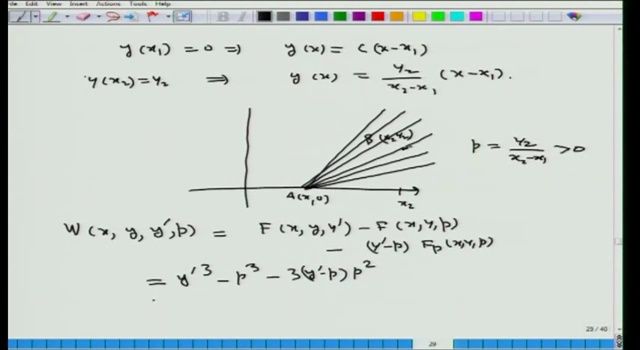 File Edit View Insert Actions Tools Help
y(x₁) = 0 ⇒ y(x) = C(x-x₁)
y(x₂) = y₂ ⇒ y(x) = y₂/(x₂-x₁) (x-x₁).
B(x₂,y₂)
p = y₂/(x₂-x₁) > 0
A(x₁,0)
x₂
W(x, y, y', p) = F(x, y, y') - F(x, y, p)
- (y'-p) Fp(x, y, p)
= y'³ - p³ - 3(y'-p) p²
29 / 40
29